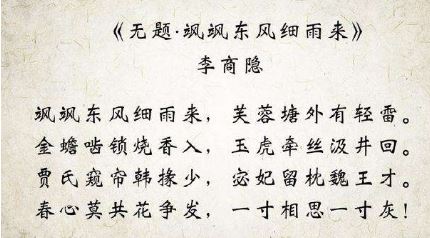 《无题·飒飒东风细雨来》
李商隐
飒飒东风细雨来，芙蓉塘外有轻雷。
金蟾啮锁烧香入，玉虎牵丝汲井回。
贾氏窥帘韩掾少，宓妃留枕魏王才。
春心莫共花争发，一寸相思一寸灰！